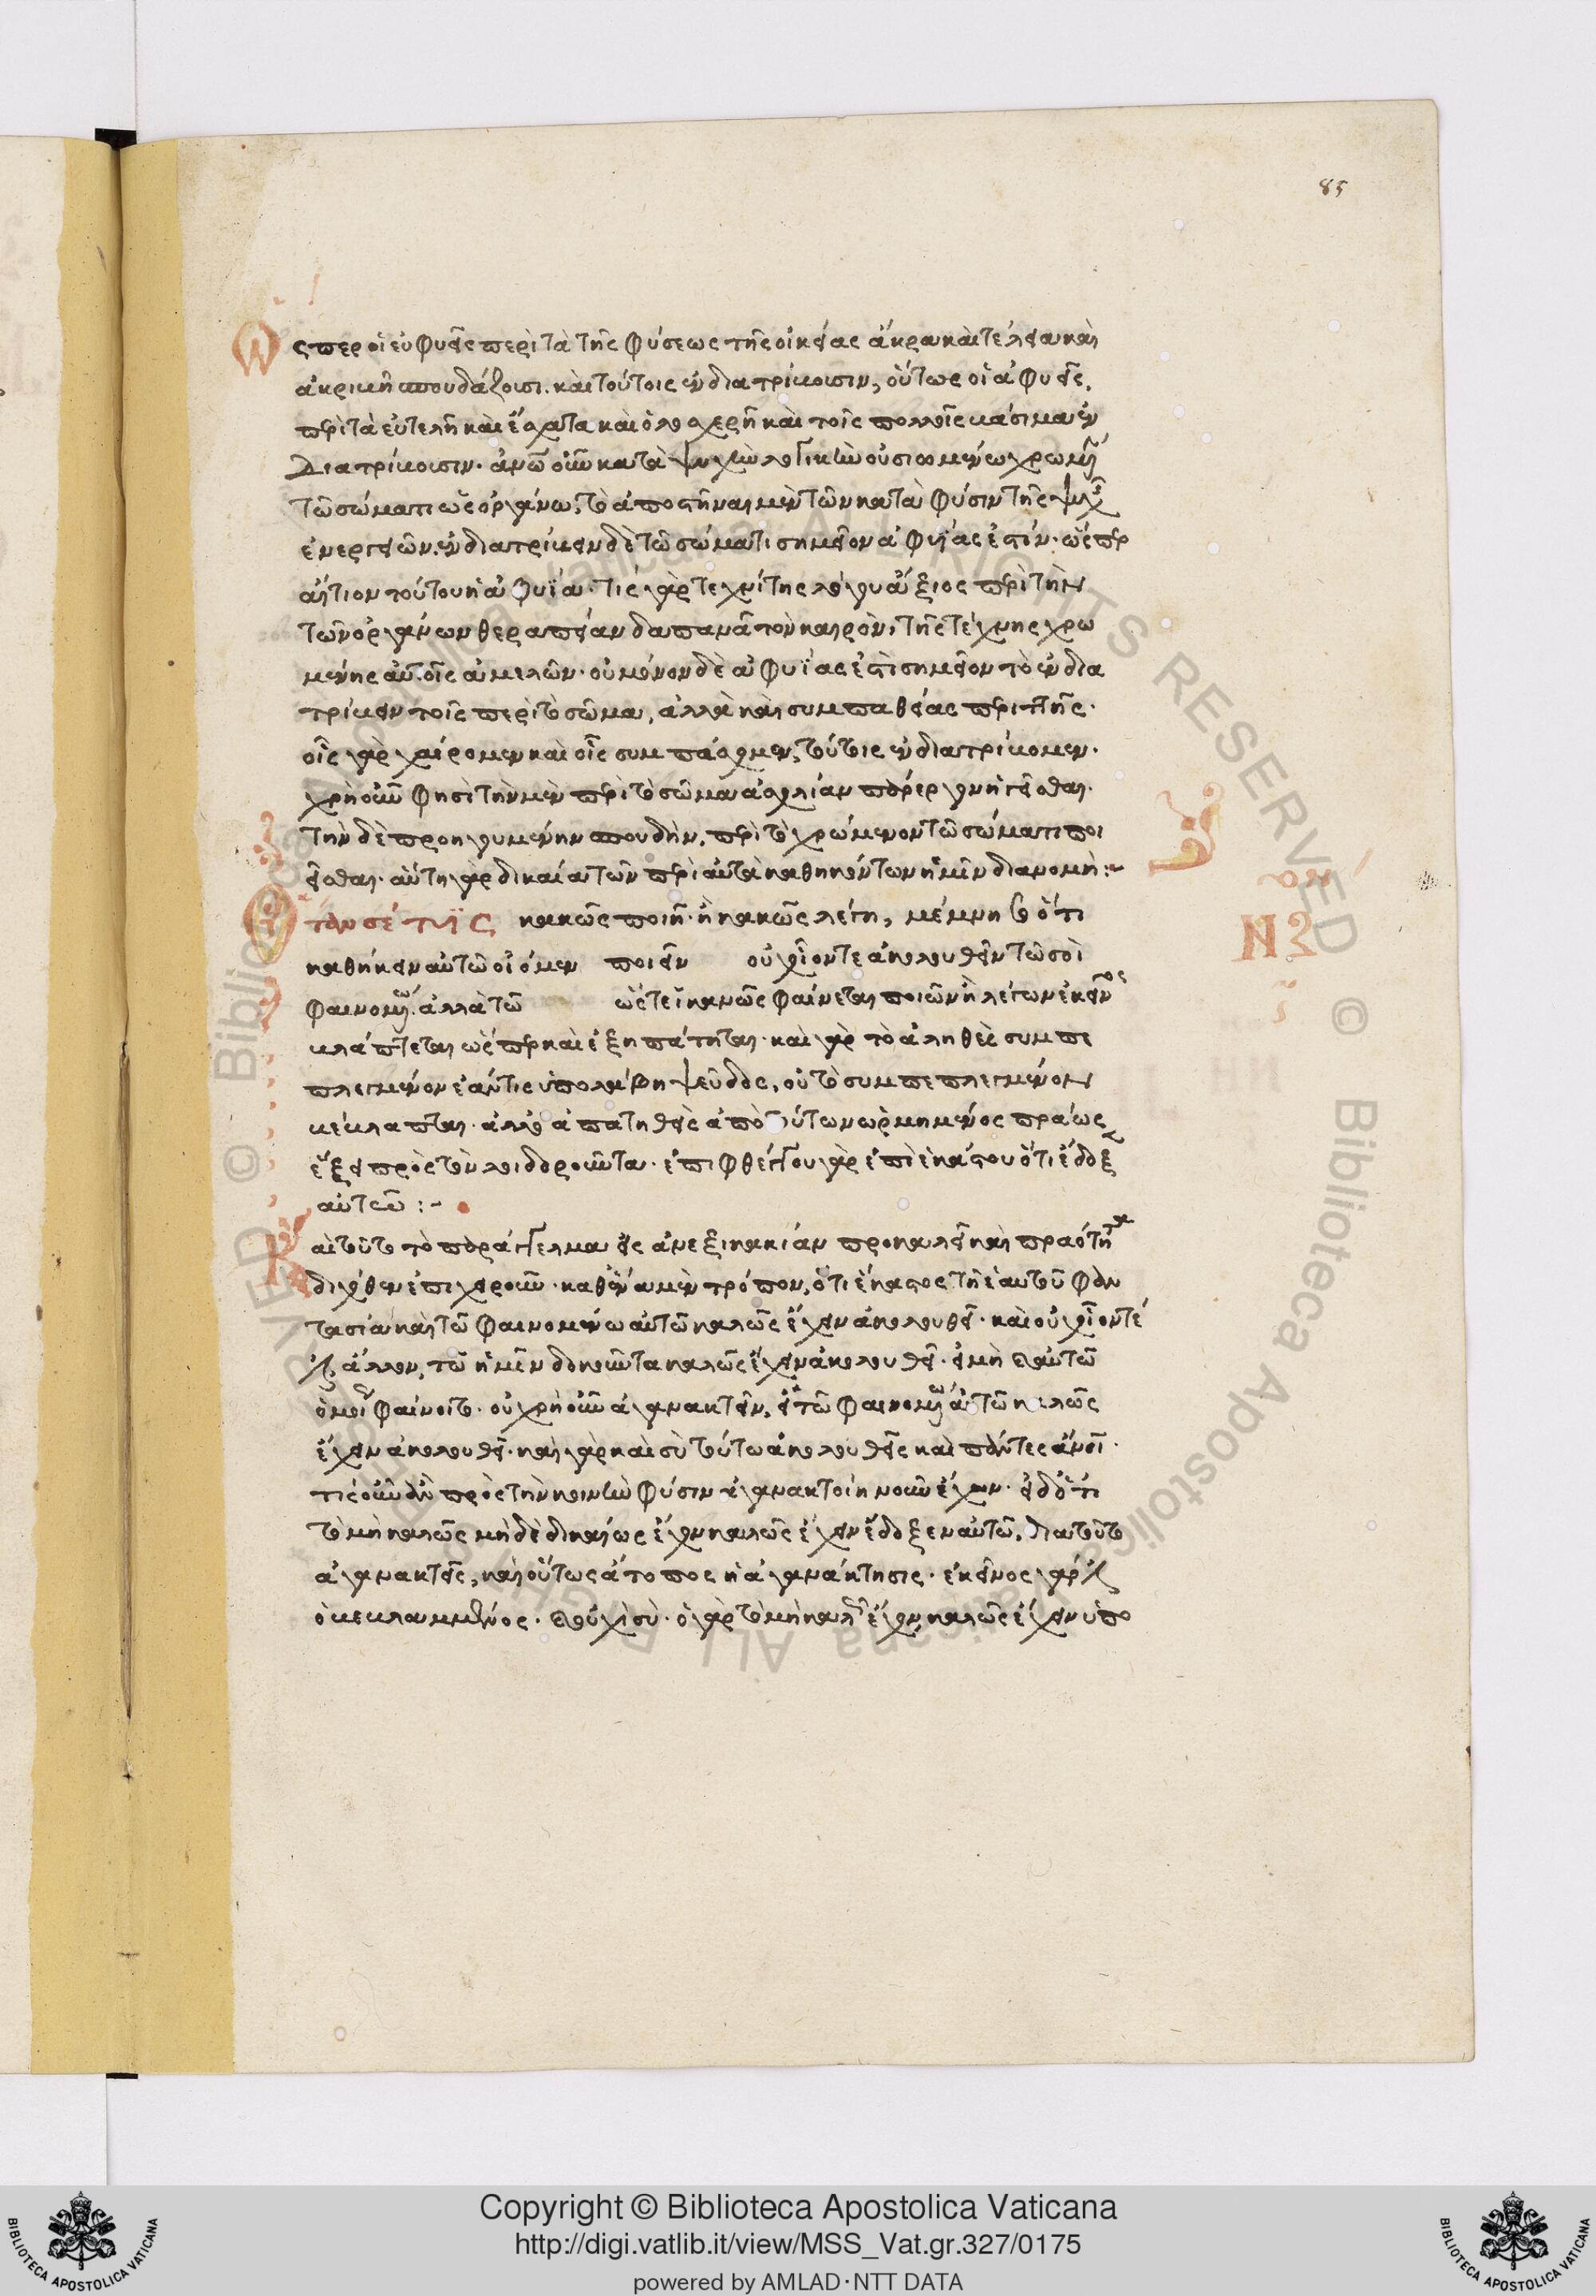 85
Ὥσπερ οἱ εὐφυεῖς περὶ τὰ τῆς φύσεως τῆς οἰκείας ἄκρα καὶ τέλεια καὶ
ἀκριβῆ σπουδάζουσι. καὶ τούτοις ἐνδιατρίβουσιν, οὕτως οἱ ἀφυεῖς,
περὶ τὰ εὐτελῆ καὶ ἔσχατα καὶ ὁλοσχερῆ καὶ τοῖς πολλοῖς βάσιμα ἐν
διατρίβουσιν. ἀνῶ οὖν κατὰ ψυχὴν λογικὴν οὐσιωμένω χρωμέ
τῶ σώματι ὡς ὀργάνω, τὸ ἀποστῆναι μὲν τῶν κατὰ φύσιν τῆς ψυχ
ἐνεργειῶν. ἐνδιατρίβειν δὲ τῶ σώματι σημεῖον ἀφυΐας ἐστίν. ὥσπερ
αἴτιον τούτου ἡ ἀφυΐα. τίς γὰρ τεχνίτης λόγου ἄξιος περὶ τὴν
τῶν ὀργάνων θεραπείαν δαπανᾶ τὸν καιρὸν, τῆς τέχνης χρω
μένης αὐτοῖς ἀμελῶν. οὐ μόνον δὲ ἀφυΐας ἐστὶ σημεῖον τὸ ἐνδια
τρίβειν τοῖς περὶ τὸ σῶμα, ἀλλὰ καὶ συμπαθείας περιττῆς.
οἷς γὰρ χαίρομεν καὶ οἷς συμπάσχομεν, τούτοις ἐνδιατρίβομεν.
χρὴ οὖν φησὶ τὴν μὲν περὶ τὸ σῶμα ἀσχολίαν πάρεργον ἡγεῖσθαι.
τὴν δὲ προηγουμένην σπουδὴν, περὶ τὸ χρώμενον τῶ σώματι ποι
εῖσθαι. αὕτη γὰρ δικαία τῶν περὶ αὐτὰ καθηκόντων ἡμῖν διανομή:~
Ὅταν σέ τις κακῶς ποιῆ. ἢ κακῶς λέγη, μέμνησο ὅτι
καθήκειν αὐτῶ οἰόμεν ποιεῖν οὐχ οἷόν τε ἀκολουθεῖν τῶ σοὶ
φαινομένω. ἀλλὰ τῶ ὥστε εἰ κακῶς φαίνεται ποιῶν ἢ λέγων ἐκεῖνος
βλάπτεται ὥσπερ καὶ ἐξηπάτηται. καὶ γὰρ τὸ ἀληθὲς συμπε
πλεγμένον ἐάν τις ὑπολάβη ψεῦδος, οὐ τὸ συμπεπλεγμένον
βέβλαπται. ἀλλ' ὁ ἀπατηθεὶς ἀπὸ τούτων ὡρμημένος πράως
ἕξει πρὸς τὸν λοιδοροῦντα. ἐπιφθέγγου γὰρ ἐπὶ ἑκάστου ὅτι ἔδοξ
αὐτῶ:~
Καὶ τοῦτο τὸ παράγγελμα εἰς ἀνεξικακίαν προκαλεῖ καὶ πραότητα
διχόθεν ἐπιχειροῦν. καθ' ἕνα μὲν τρόπον, ὅτι ἕκαστος τῆ ἑαυτοῦ φαν
τασία καὶ τῶ φαινομένω αὐτῶ καλῶς ἔχειν ἀκολουθεῖ. καὶ οὐχ οἷόν τέ
ἐστιν ἄλλον, τῶ ἡμῖν δοκοῦντα καλῶς ἔχειν ἀκολουθεῖ. εἰ μὴ καὶ αὐτῶ
ὅμοι φαίνοιτο. οὐ χρὴ οὖν ἀγανακτεῖν, εἰ τῶ φαινομένω αὐτῶ καλῶς
ἔχειν ἀκολουθεῖ. καὶ γὰρ καὶ σὺ τούτω ἀκολουθεῖς καὶ πάντες ἄνοι.
τίς οὖν ἂν πρὸς τὴν κοινὴν φύσιν ἀγανακτοίη νοῦν ἔχων. εἰ δ' ὅτι
τὸ μὴ καλῶς μὴ δὲ δικαίως ἔχον καλῶς ἔχειν ἔδοξεν αὐτῶ, διὰ τοῦτο
ἀγανακτεῖς, καὶ οὕτως ἄτοπος ἡ ἀγανάκτησις. ἐκεῖνος γάρ ἐστιν
ὁ βεβλαμμένος. καὶ οὐχὶ σὺ. ὁ γὰρ τὸ μὴ καλῶς ἔχον, καλῶς ἔχειν ὑπο
Copyright © Biblioteca Apostolica Vaticana
http://digi.vatlib.it/view/MSS_Vat.gr.327/0175
powered by AMLAD·NTT DATA